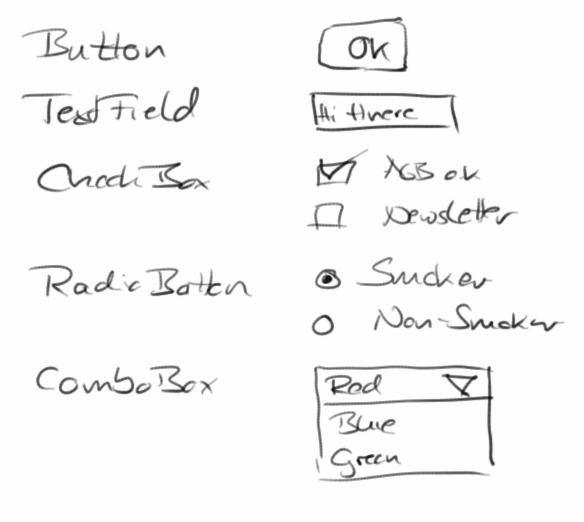 Button OK
TextField Hi there
CheckBox AGB ok
Newsletter
RadioButton Smoker
Non-Smoker
ComboBox Red
Blue
Green